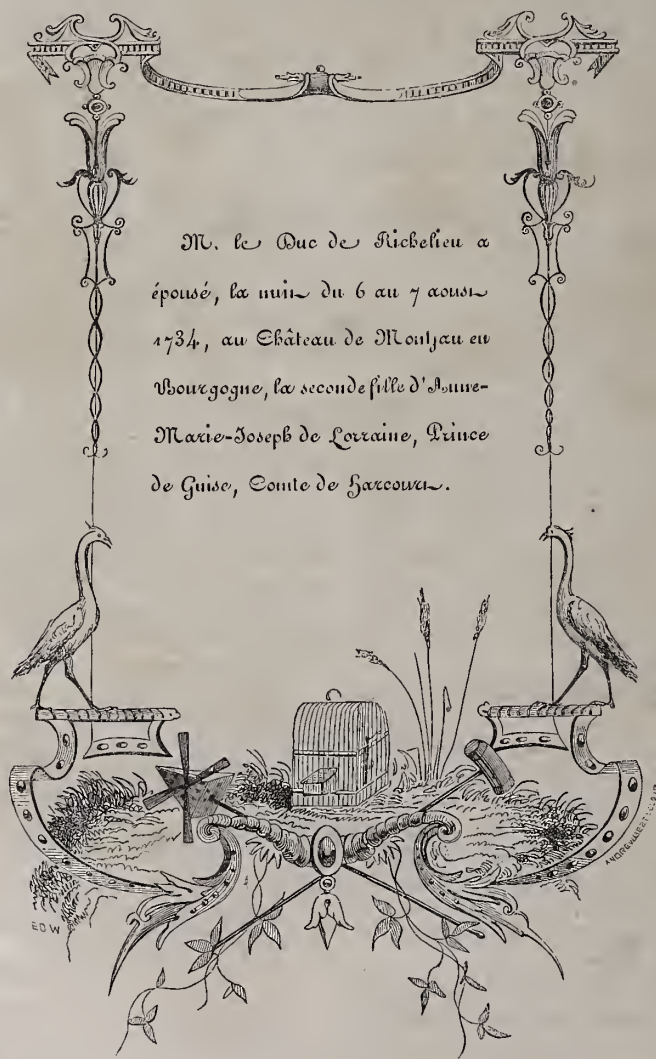 M. le Duc de Richelieu a
épousé, la nuit du 6 au 7 aoust
1734, au Château de Montjau en
Bourgogne, la seconde fille d'Anne-
Marie-Joseph de Lorraine, Prince
de Guise, Comte de Harcourt.
EDW